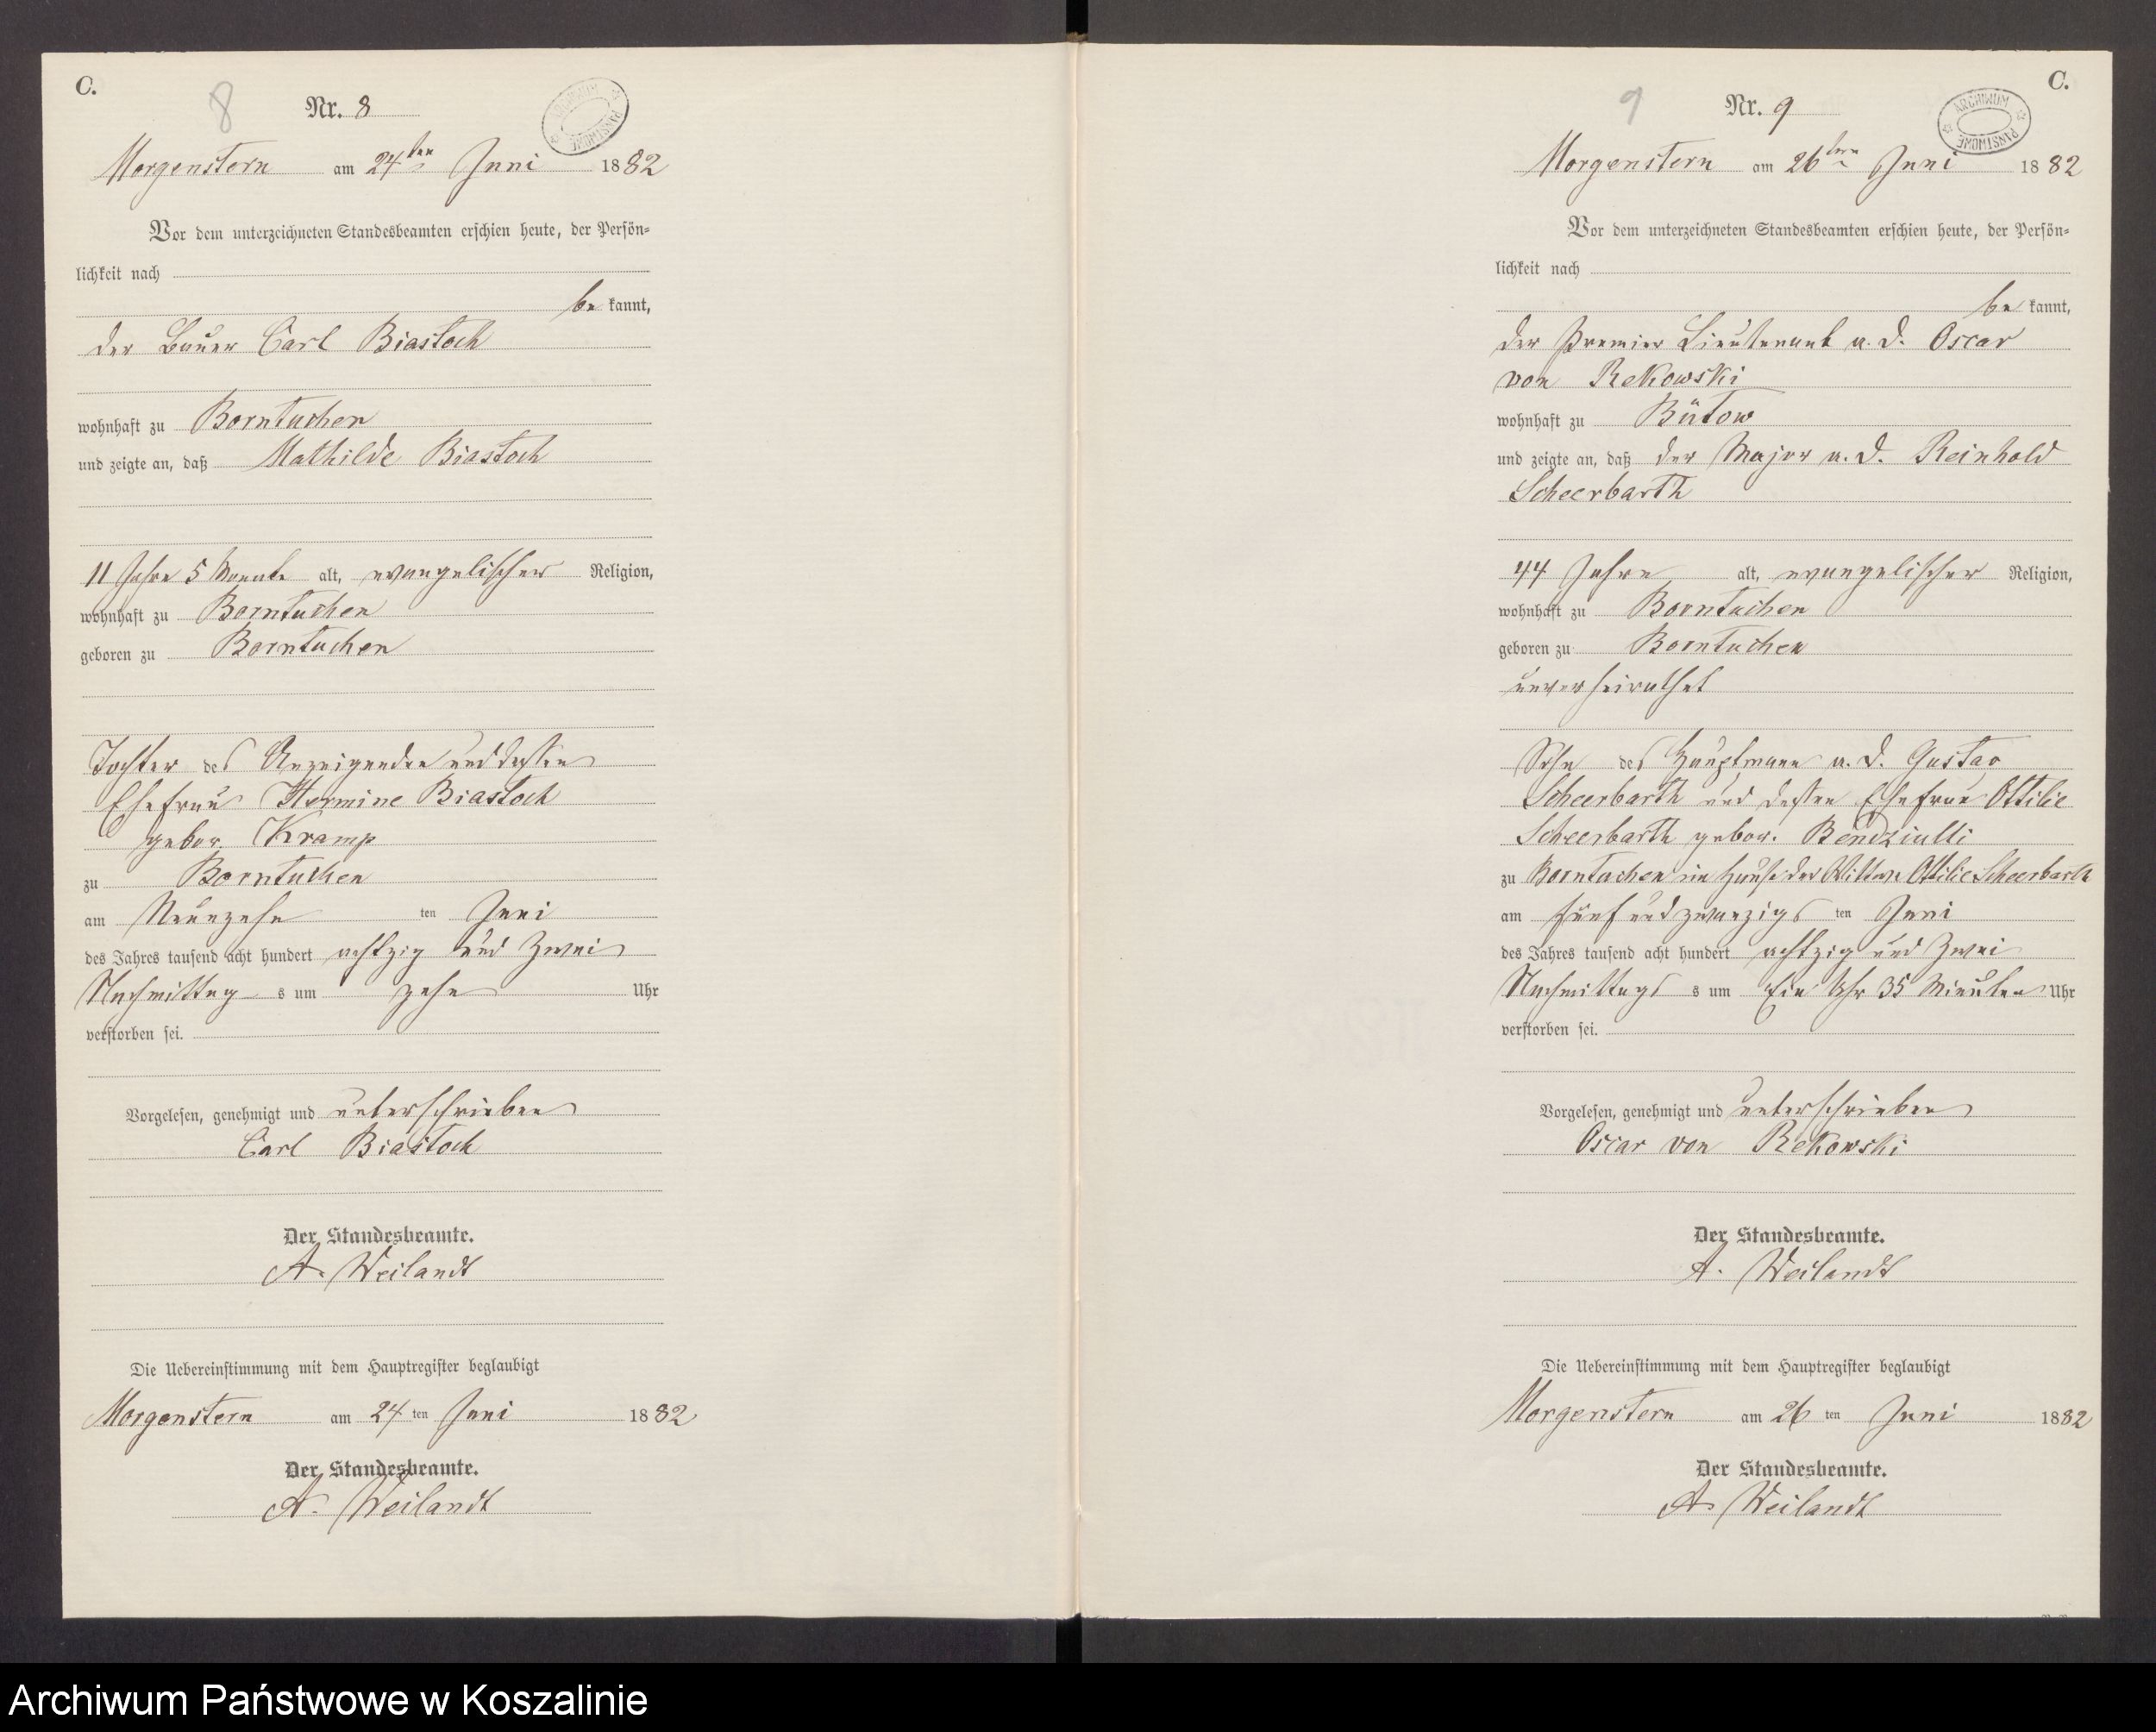 C.
8
Nr. 8
ARCHIWUM PAŃSTWOWE
Morgenstern am 24ten Juni 1882
Vor dem unterzeichneten Standesbeamten erschien heute, der Persön-
lichkeit nach
be kannt,
der Bauer Carl Biastoch
wohnhaft zu Borntuchen
und zeigte an, daß Mathilde Biastoch
11 Jahre 5 Monate alt, evangelischer Religion,
wohnhaft zu Borntuchen
geboren zu Borntuchen
Tochter des Anzeigenden und dessen
Ehefrau Hermine Biastoch
gebor. Kramp
zu Borntuchen
am Neunzehn ten Juni
des Jahres tausend acht hundert achtzig und zwei
Nachmittag s um zehn Uhr
verstorben sei.
Vorgelesen, genehmigt und unterschrieben
Carl Biastoch
Der Standesbeamte.
A. Weilandt
Die Uebereinstimmung mit dem Hauptregister beglaubigt
Morgenstern am 24 ten Juni 1882
Der Standesbeamte.
A. Weilandt
C.
9
Nr. 9
ARCHIWUM PAŃSTWOWE
Morgenstern am 26ten Juni 1882
Vor dem unterzeichneten Standesbeamten erschien heute, der Persön-
lichkeit nach
be kannt,
der Premier Lieutenant a. D. Oscar
von Rekowski
wohnhaft zu Bütow
und zeigte an, daß der Major a. D. Reinhold
Scheerbarth
44 Jahre alt, evangelischer Religion,
wohnhaft zu Borntuchen
geboren zu Borntuchen
unverheirathet
Sohn des Hauptmann a. D. Gustav
Scheerbarth und dessen Ehefrau Ottilie
Scheerbarth gebor. Bendziulli
zu Borntuchen im Hause der Wittwe Ottilie Scheerbarth
am fünf und zwanzigs ten Juni
des Jahres tausend acht hundert achtzig und zwei
Nachmittags s um Ein Uhr 35 Minuten Uhr
verstorben sei.
Vorgelesen, genehmigt und unterschrieben
Oscar von Rekowski
Der Standesbeamte.
A. Weilandt
Die Uebereinstimmung mit dem Hauptregister beglaubigt
Morgenstern am 26 ten Juni 1882
Der Standesbeamte.
A. Weilandt
Archiwum Państwowe w Koszalinie